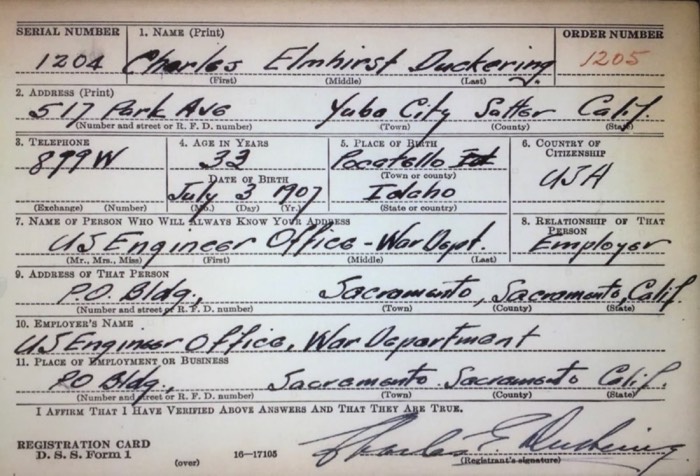 SERIAL NUMBER 1. NAME (Print) ORDER NUMBER
1204 Charles Elmhirst Duckering 1205
(First) (Middle) (Last)
2. ADDRESS (Print)
517 Park Ave Yuba City Sutter Calif.
(Number and street or R. F. D. number) (Town) (County) (State)
3. TELEPHONE 4. AGE IN YEARS 5. PLACE OF BIRTH 6. COUNTRY OF CITIZENSHIP
899W 33 Pocatello USA
DATE OF BIRTH (Town or county)
July 3 1907 Idaho
(Exchange) (Number) (Mo.) (Day) (Yr.) (State or country)
7. NAME OF PERSON WHO WILL ALWAYS KNOW YOUR ADDRESS 8. RELATIONSHIP OF THAT PERSON
US Engineer Office - War Dept. Employer
(Mr., Mrs., Miss) (First) (Middle) (Last)
9. ADDRESS OF THAT PERSON
P.O. Bldg, Sacramento, Sacramento, Calif
(Number and street or R. F. D. number) (Town) (County) (State)
10. EMPLOYER'S NAME
US Engineer Office, War Department
11. PLACE OF EMPLOYMENT OR BUSINESS
PO Bldg, Sacramento Sacramento Calif.
(Number and street or R. F. D. number) (Town) (County) (State)
I AFFIRM THAT I HAVE VERIFIED ABOVE ANSWERS AND THAT THEY ARE TRUE.
REGISTRATION CARD
D. S. S. Form 1 16—17105 Charles E. Duckering
(over) (Registrant's signature)